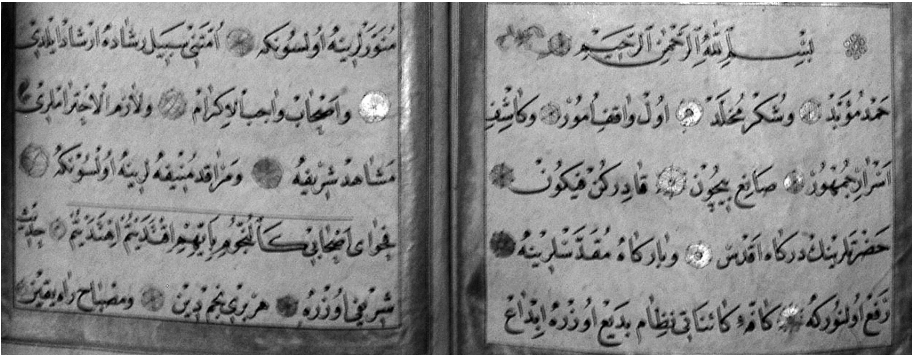 بسم الله الرحمن الرحيم
حمد مؤبد وشكر مخلد اول واقف امور وكاشف
اسرار جمهور صانع بيچون قادر كن فيكون
حضرتلرينك دركاه اقدس وباركاه مقدسلرينه
رفع اولنور كه كافهٔ كائناتى نظام بديع اوزره ابداع
منورلرينه اولسونكه امتنى سبيل رشاده ارشاد ايلدى
واصحاب واجب الاكرام ولازم الاحتراملرى
مشاهد شريفه ومراقد منيفه لرينه اولسونكه
فحواى اصحابى كالنجوم بايهم اقتديتم اهتديتم حديث
شريفى اوزره هر برى نجم دين ومصباح راه يقين